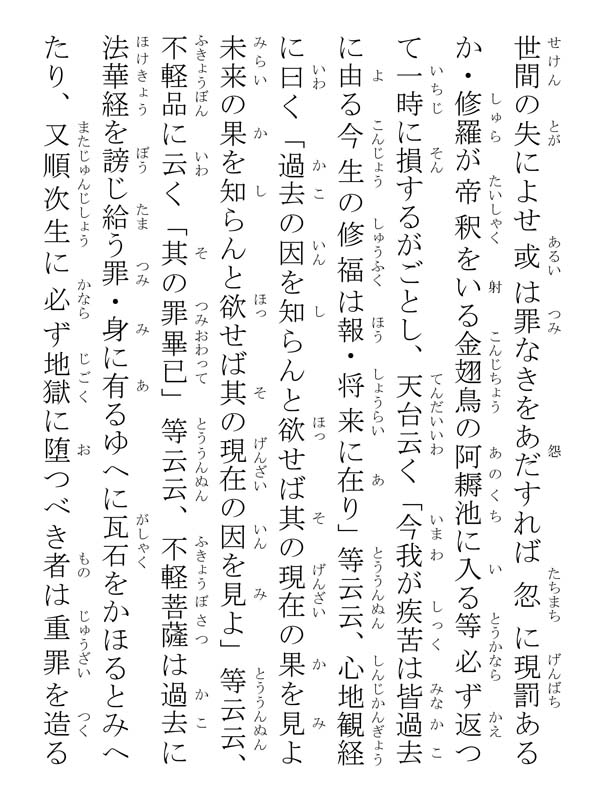 世間の失によせ或は罪なきをあだすれば忽に現罰ある
か・修羅が帝釈をいる金翅鳥の阿耨池に入る等必ず返つ
て一時に損するがごとし、天台云く「今我が疾苦は皆過去
に由る今生の修福は報・将来に在り」等云云、心地観経
に曰く「過去の因を知らんと欲せば其の現在の果を見よ
未来の果を知らんと欲せば其の現在の因を見よ」等云云、
不軽品に云く「其の罪畢已」等云云、不軽菩薩は過去に
法華経を謗じ給う罪・身に有るゆへに瓦石をかほるとみへ
たり、又順次生に必ず地獄に堕つべき者は重罪を造る